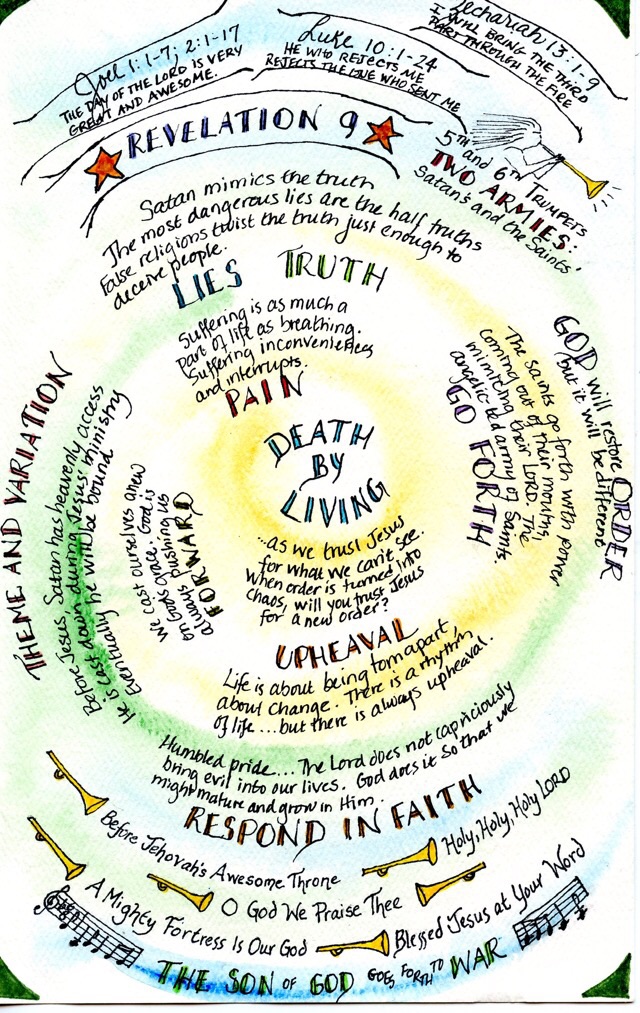 Joel 1:1-7; 2:1-17
THE DAY OF THE LORD IS VERY
GREAT AND AWESOME.
Luke 10:1-24
HE WHO REJECTS ME
REJECTS THE ONE WHO SENT ME
Zechariah 13:1-9
I WILL BRING THE THIRD
PART THROUGH THE FIRE
REVELATION 9
5TH and 6TH Trumpets
TWO ARMIES:
Satan's and the Saints'
Satan mimics the truth
The most dangerous lies are the half truths
False religions twist the truth just enough to
deceive people.
LIES TRUTH
Suffering is as much a
part of life as breathing.
Suffering inconveniences
and interrupts.
PAIN
DEATH
BY
LIVING
GOD will restore ORDER
but it will be different
The Saints go forth with power
coming out of their mouths,
mimicking their LORD. The
angelic-led army of Saints.
GO FORTH
THEME AND VARIATION
Before Jesus, Satan has heavenly access
He is cast down during Jesus' ministry
Eventually he will be bound
We cast ourselves anew
on God's grace. God is
always pushing us
FORWARD
...as we trust Jesus
for what we can't see.
When order is turned into
chaos, will you trust Jesus
for a new order?
UPHEAVAL
Life is about being torn apart,
about change. There is a rhythm
of life...but there is always upheaval.
Humbled pride.... The Lord does not capriciously
bring evil into our lives. God does it so that we
might mature and grow in Him.
RESPOND IN FAITH
Before Jehovah's Awesome Throne
Holy, Holy, Holy LORD
A Mighty Fortress Is Our God
O God We Praise Thee
Blessed Jesus at Your Word
THE SON OF GOD GOES FORTH TO WAR